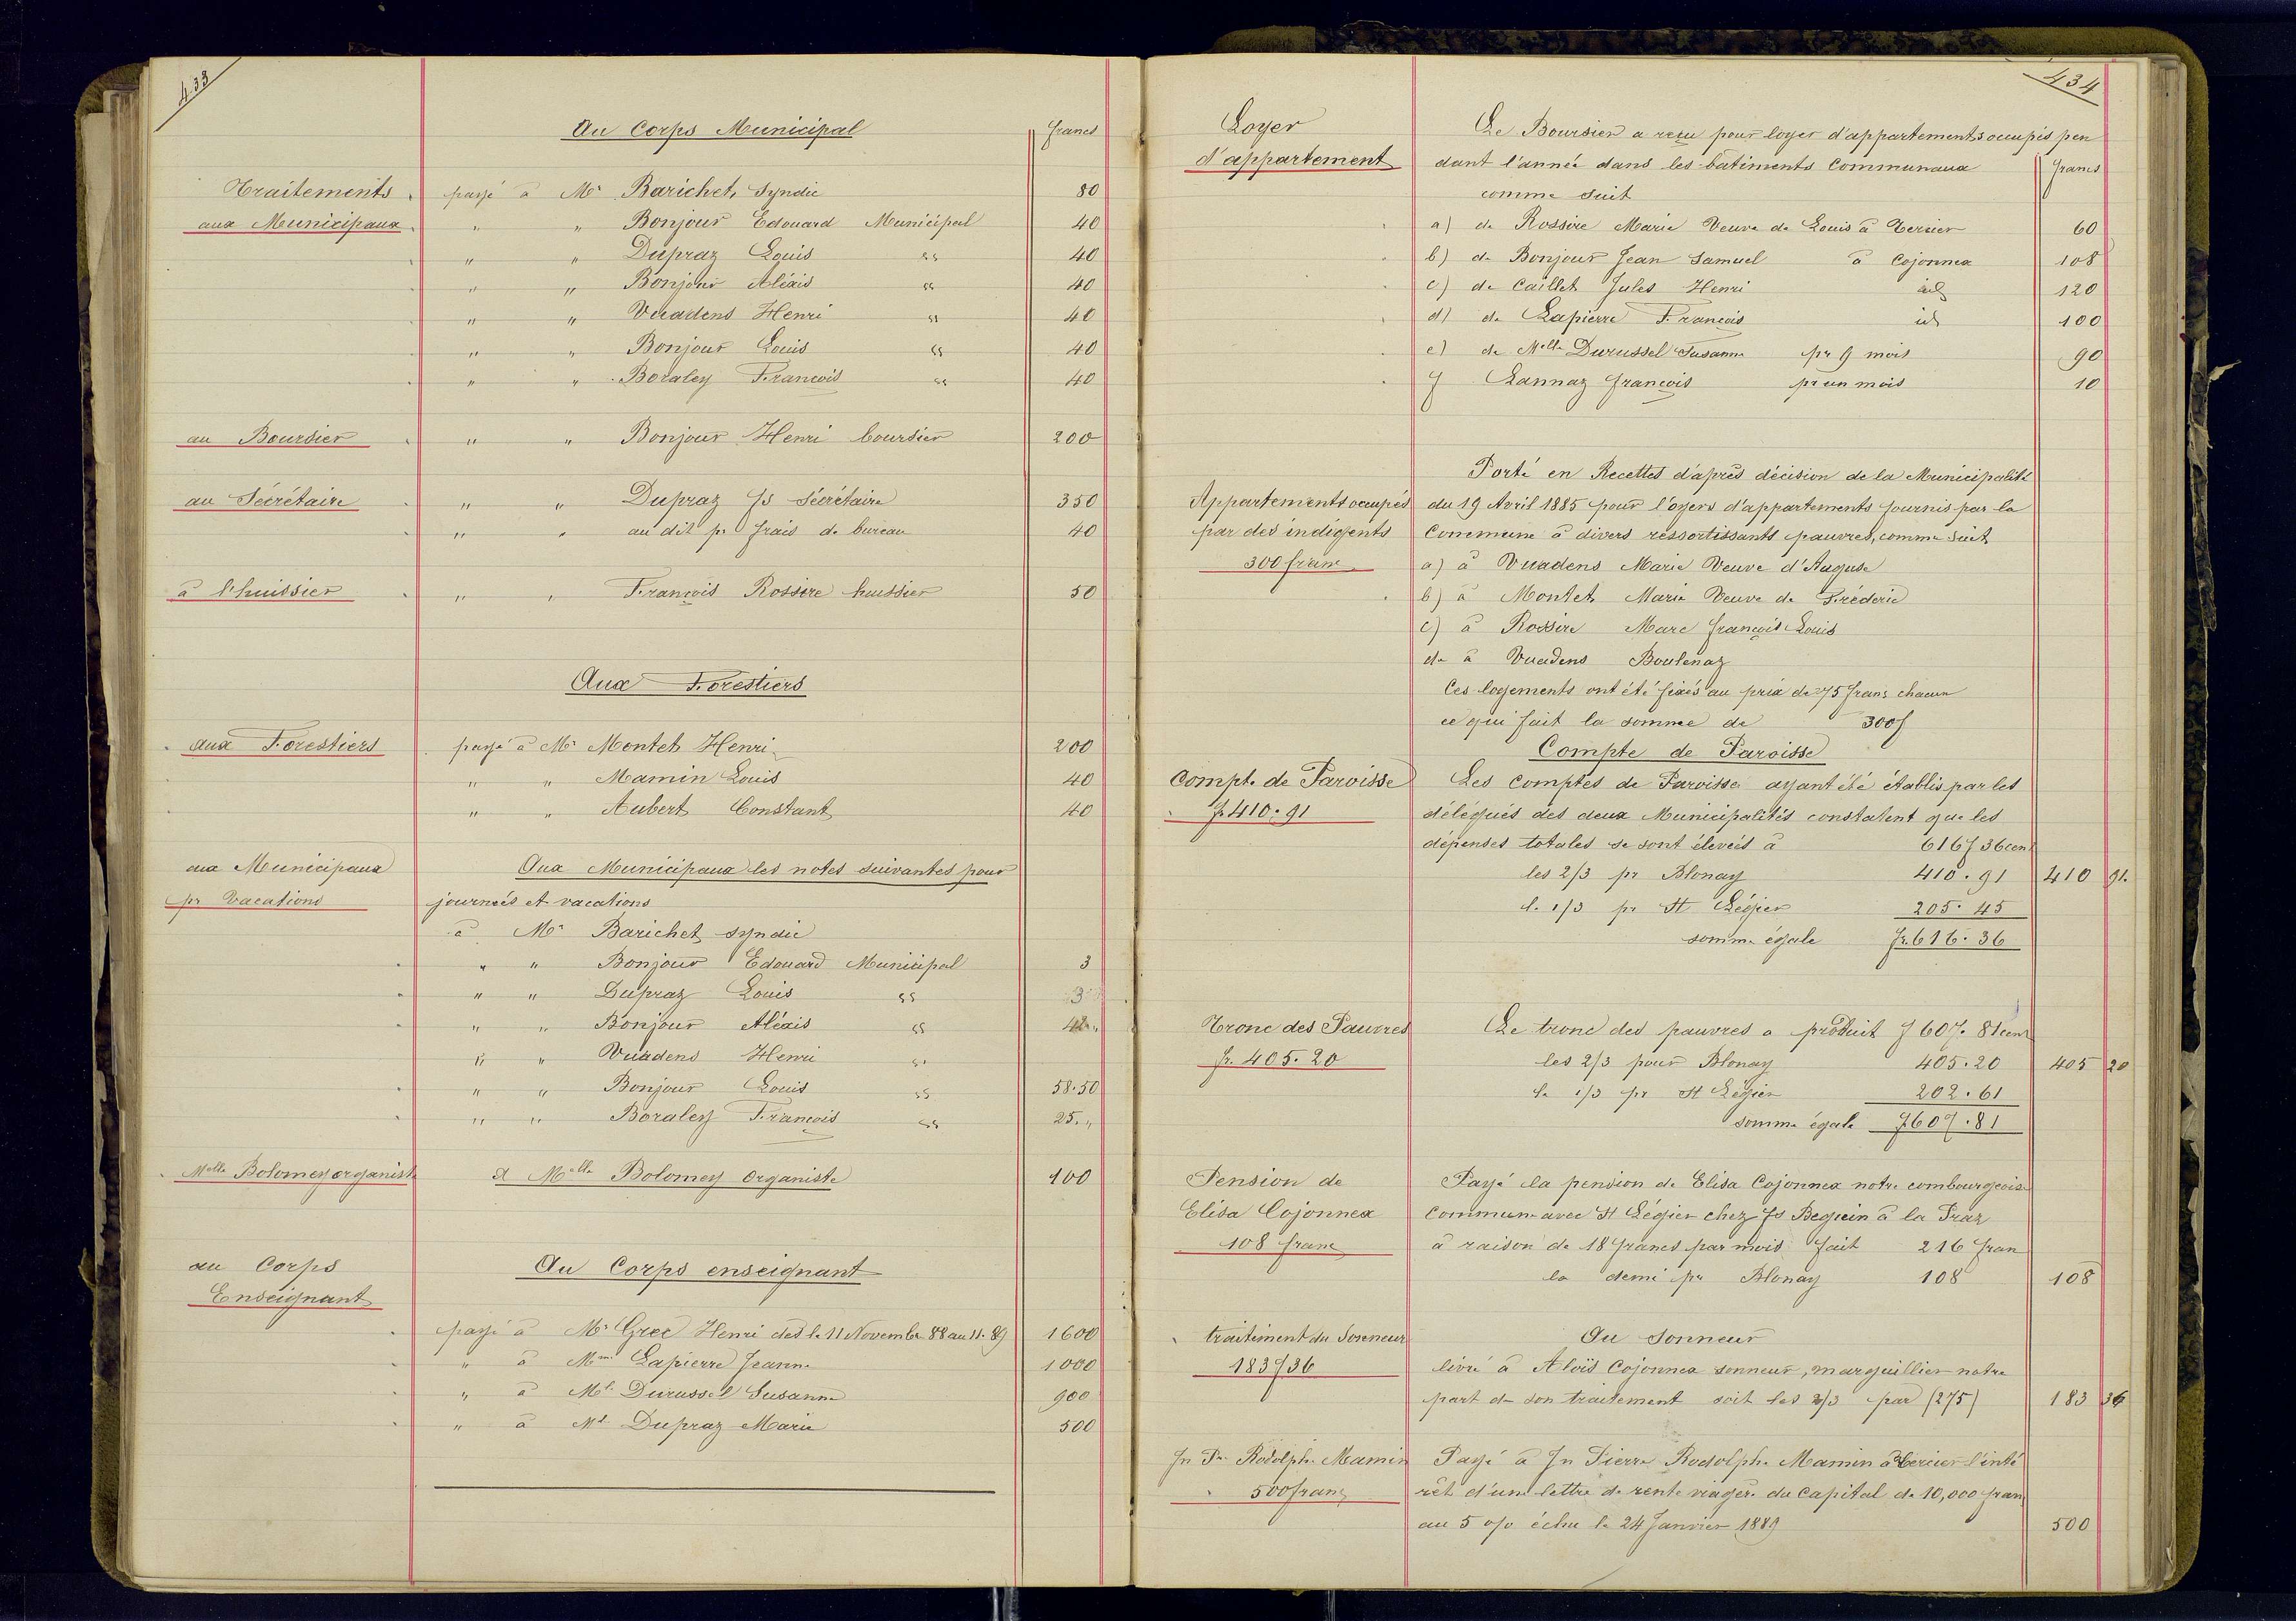 433
Au Corps Municipal francs
Traitements payé à Mr Barichet, Syndic 80
aux Municipaux " " Bonjour Edouard Municipal 40
" " Dupraz Louis " 40
" " Bonjour Aléxis " 40
" " Vuadens Henri " 40
" " Bonjour Louis " 40
" " Boraley François " 40
au Boursier " " Bonjour Henri boursier 200
au Sécrétaire " " Dupraz fs Sécrétaire 350
" " au dit pr frais de bureau 40
à l'huissier " " François Rossire huissier 50
Aux Forestiers
aux Forestiers payé à Mr Montet Henri 200
" " Mamin Louis 40
" " Aubert Constant 40
aux Municipaux Aux Municipaux les notes suivantes pour
pr Vacations journeés et vacations
à Mr Barichet syndic
" " Bonjour Edouard Municipal 3
" " Dupraz Louis " 3
" " Bonjour Aléxis "
" " Vuadens Henri "
" " Bonjour Louis " 58.50
" " Boraley François " 25."
Melle Bolomey organiste A Melle Bolomey Organiste 100
au Corps Au Corps enseignant
Enseignant
payé à Mr Grec Henri dès le 11 Novembre 88 au 11. 89 1600
" à Mme Lapierre Jeanne 1000
" à Ml. Durussel Susanne 900
" à Ml. Dupraz Marie 500
434
Loyer Le Boursier a reçu pour loyer d'appartements occupés pen
d'appartement dant l'année dans les bâtiments Communaux francs
comme suit
a) de Rossire Marie Veuve de Louis à Tercier 60
b) de Bonjour Jean Samuel à Cojonnex 108
c) de Caillet Jules Henri id 120
d) de Lapierre François id 100
e) de Melle Durussel Susanne pr 9 mois 90
f Lannaz françois pr un mois 10
Porté en Recettes d'après décision de la Municipalité
Appartements occupés du 19 Avril 1885 pour l'oyers d'appartements fournis par la
par des indigents Commune à divers ressortissants pauvres, comme suit
300 franc a) à Vuadens Marie Veuve d'Auguse
b) à Montet Marie Veuve de Fréderic
c) à Rossire Marc françois Louis
de à Vuadens Boulenaz
Ces logements ont été fixés au prix de 75 frans chacun
ce qui fait la somme de 300f
Compte de Paroisse
Compte de Paroisse Les Comptes de Paroisse ayant été établis par les
fr 410.91 délégués des deux Municipalités constatent que les
dépenses totales se sont éleveés à 616f 36 cent
les 2/3 pr Blonay 410.91 410 91.
le 1/3 pr St Légier 205.45
somme égale fr. 616.36
Tronc des Pauvres Le tronc des pauvres a produit f 607.81 cent
fr. 405.20 les 2/3 pour Blonay 405.20 405 20
le 1/3 pr St Légier 202.61
somme égale f 607.81
Pension de Payé la pension de Elisa Cojonnex notre combourgeoise
Elisa Cojonnex Commune avec St Légier chez fs Beguin à la Praz
108 franc à raison de 18 francs par mois fait 216 fran
la demi pr Blonay 108 108
traitement du Sonneur Au Sonneur
183f36 livré à Aloïs Cojonnex sonneur, marguillier notre
part de son traitement soit les 2/3 par (275) 183 36
Jn Pre Rodolphe Mamin Payé à Jn Pierre Rodolphe Mamin à Tercier l'inté
500 franc rêt d'une lettre de rente viagère du Capital de 10,000 fran
au 5 o/o échu le 24 Janvier 1889 500